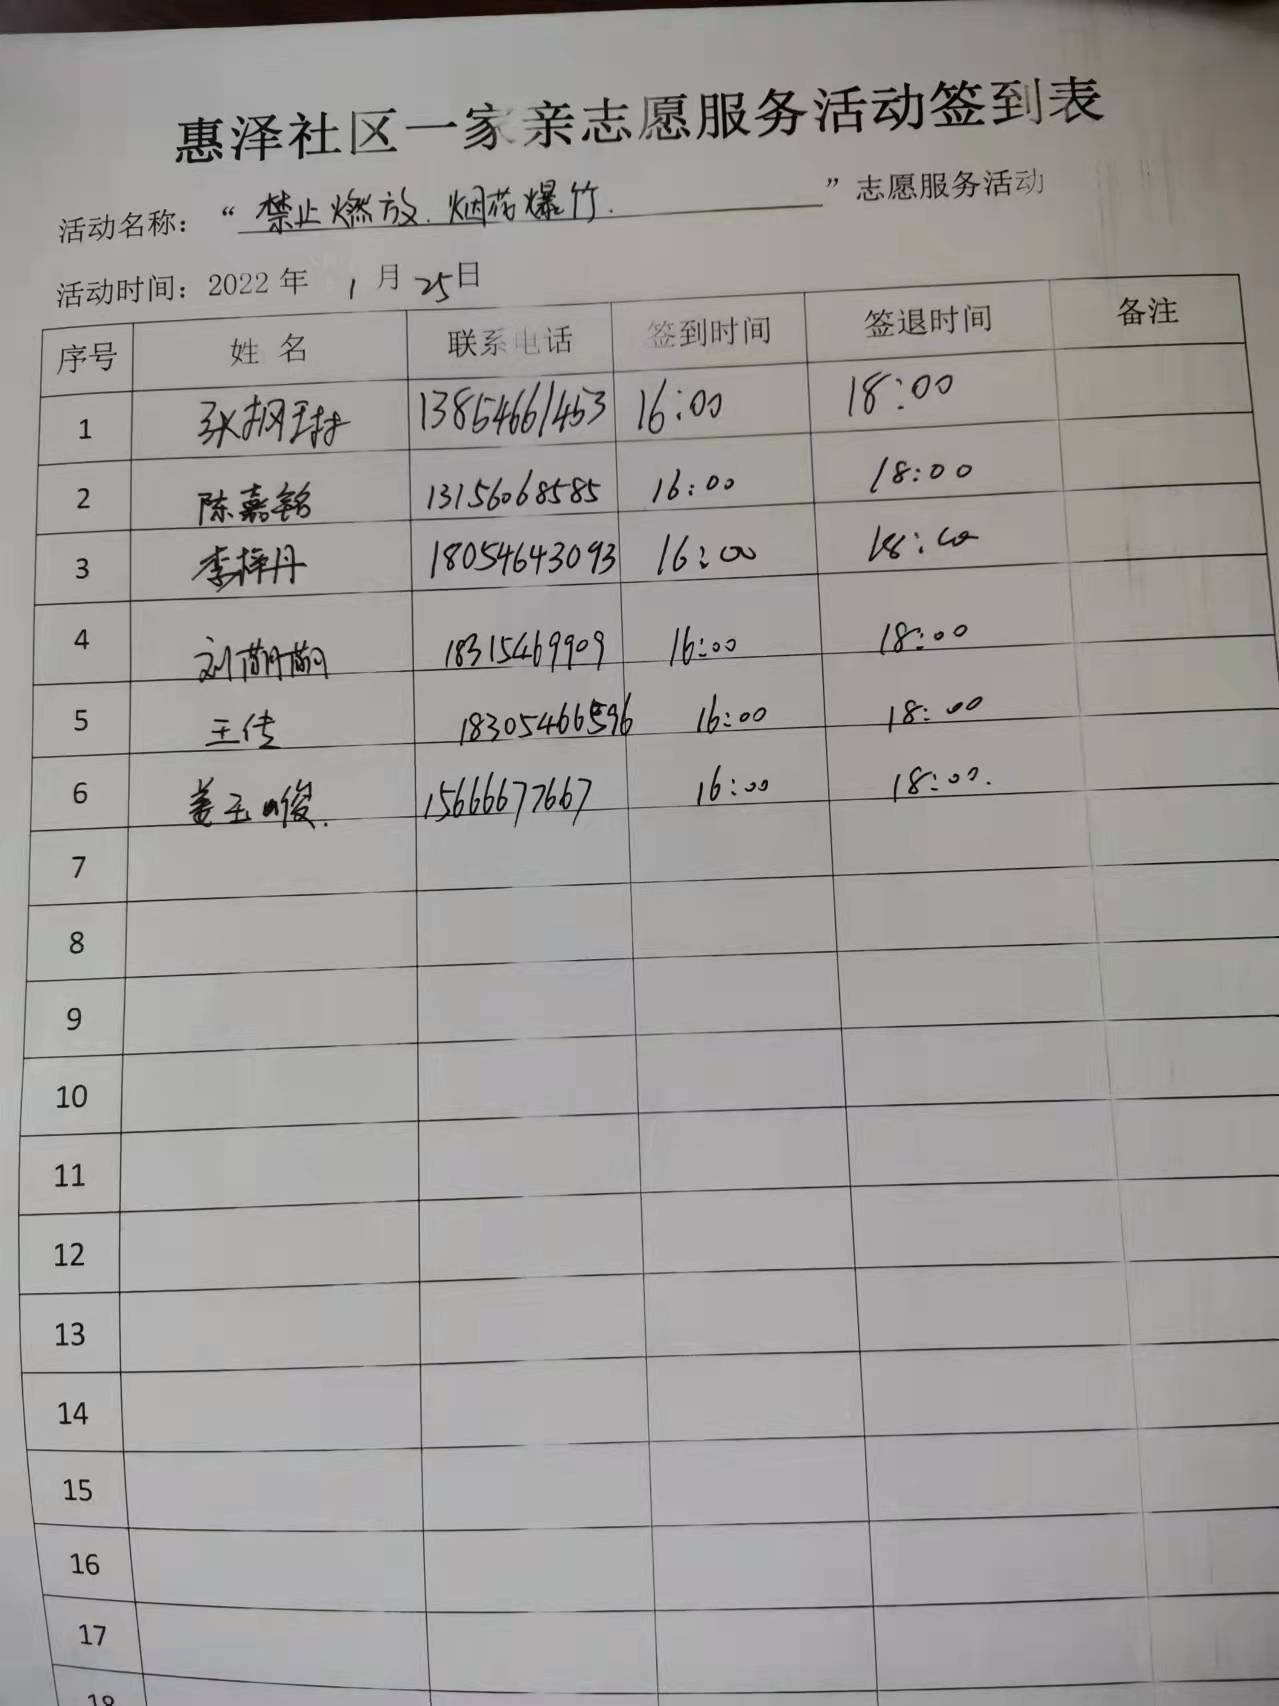 惠泽社区一家亲志愿服务活动签到表
活动名称：“禁止燃放.烟花爆竹.”志愿服务活动
活动时间：2022年 1月25日
序号 姓名 联系电话 签到时间 签退时间 备注
1 13854661453 16:00 18:00
2 陈嘉铭 13156068585 16:00 18:00
3 李梓丹 18054643093 16:00 18:00
4 刘萌萌 18315469909 16:00 18:00
5 王传 18305466596 16:00 18:00
6 姜玉 15666677667 16:00 18:00.
7
8
9
10
11
12
13
14
15
16
17
18